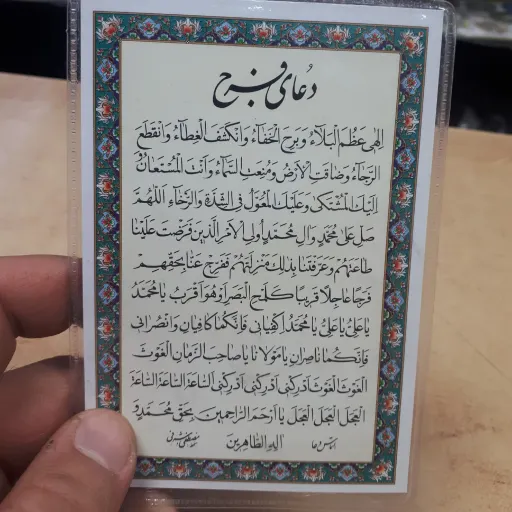 دعای فرج
اِلٰهي عَظُمَ الْبَلاٰءُ وَبَرِحَ الْخَفٰاءُ وَانْكَشَفَ الْغِطٰاءُ وَانْقَطَعَ
الرَّجٰاءُ وَضٰاقَتِ الْاَرْضُ وَمُنِعَتِ السَّمٰاءُ وَاَنْتَ الْمُسْتَعٰانُ
اِلَيْكَ الْمُشْتَكىٰ وَعَلَيْكَ الْمُعَوَّلُ فِى الشِّدَّةِ وَالرَّخٰاءِ اَللّٰهُمَّ
صَلِّ عَلىٰ مُحَمَّدٍ وَاٰلِ مُحَمَّدٍ اُولِى الْاَمْرِ الَّذينَ فَرَضْتَ عَلَيْنٰا
طٰاعَتَهُمْ وَعَرَّفْتَنٰا بِذٰلِكَ مَنْزِلَتَهُمْ فَفَرِّجْ عَنّٰا بِحَقِّهِمْ
فَرَجاً عٰاجِلاً قَريباً كَلَمْحِ الْبَصَرِ اَوْ هُوَ اَقْرَبُ يٰا مُحَمَّدُ
يٰا عَلِىُّ يٰا عَلِىُّ يٰا مُحَمَّدُ اِكْفِيٰاني فَاِنَّكُمٰا كٰافِيٰانِ وَانْصُرٰاني
فَاِنَّكُمٰا نٰاصِرٰانِ يٰا مَوْلٰانٰا يٰا صٰاحِبَ الزَّمٰانِ الْغَوْثَ
الْغَوْثَ الْغَوْثَ اَدْرِكْني اَدْرِكْني اَدْرِكْني اَلسّٰاعَةَ السّٰاعَةَ السّٰاعَةَ
الْعَجَلَ الْعَجَلَ الْعَجَلَ يٰا اَرْحَمَ الرّٰاحِمينَ بِحَقِّ مُحَمَّدٍ وَ
التماس دعا اٰلِهِ الطّٰاهِرينَ